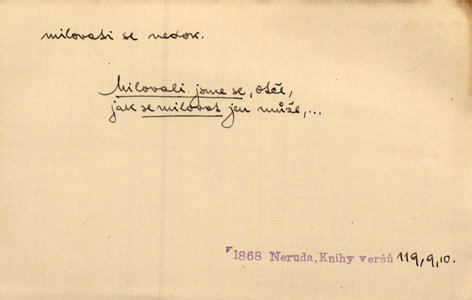 milovati se nedok.
Milovali jsme se, otče,
jak se milovat jen může,...
1868 Neruda, Knihy veršů 119,9,10.